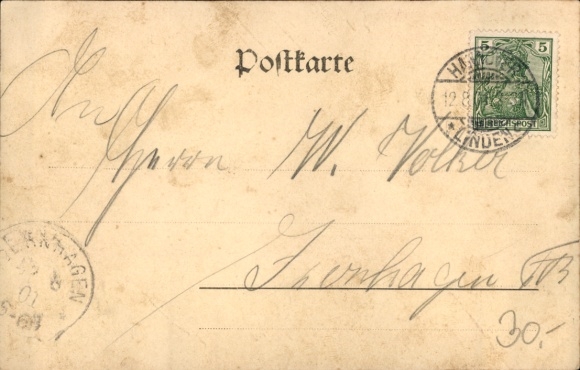 Postkarte
5 5
REICHSPOST
HANNOVER
12.8
* LINDEN *
An
Herrn W. Volker
Isernhagen FB
ISERNHAGEN
30.-